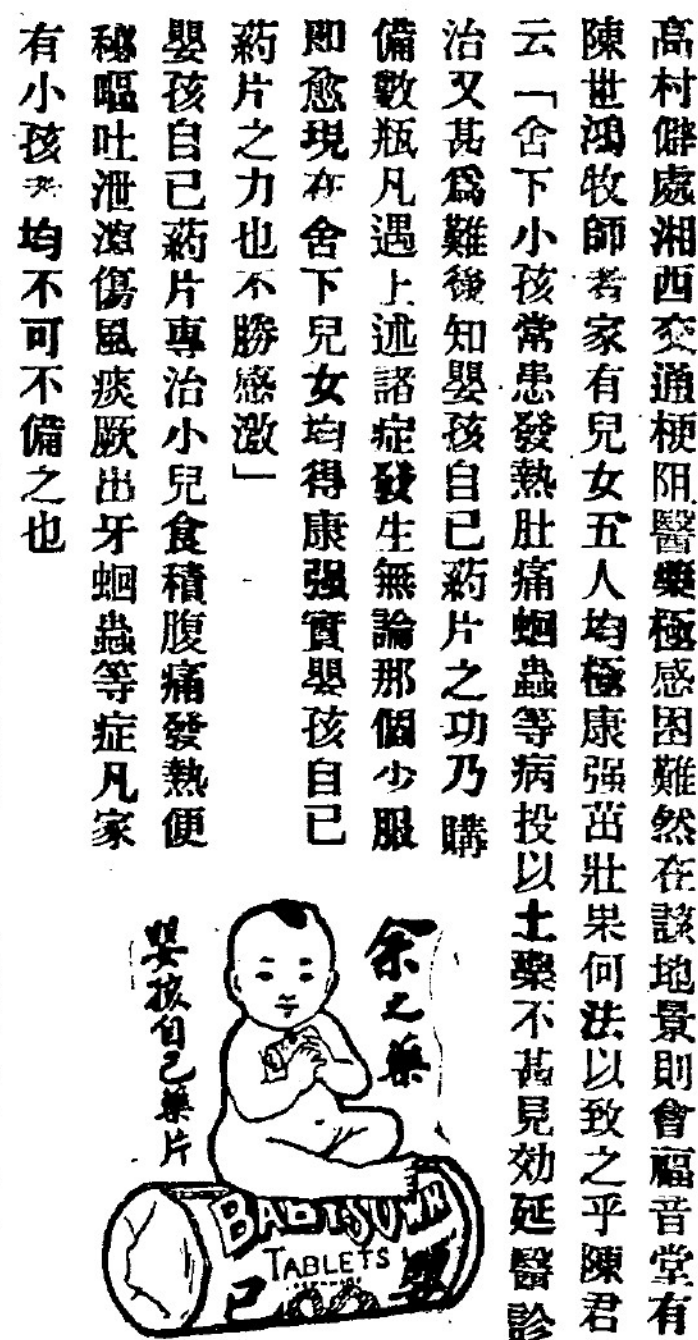 高村僻處湘西交通梗阻醫藥極感困難然在該地景則會福音堂有
陳世鴻牧師者家有兒女五人均極康强茁壯果何法以致之乎陳君
云「舍下小孩常患發熱肚痛蛔蟲等病投以土藥不甚見効延醫診
治又甚爲難後知嬰孩自已葯片之功乃購
備數瓶凡遇上述諸症發生無論那個少服
即愈現在舍下兒女均得康强實嬰孩自已
葯片之力也不勝感激」
嬰孩自已葯片專治小兒食積腹痛發熱便
秘嘔吐泄瀉傷風痰厥出牙蛔蟲等症凡家
有小孩者均不可不備之也
余之藥
嬰孩自己藥片
BABY'S OWN
TABLETS
己 嬰